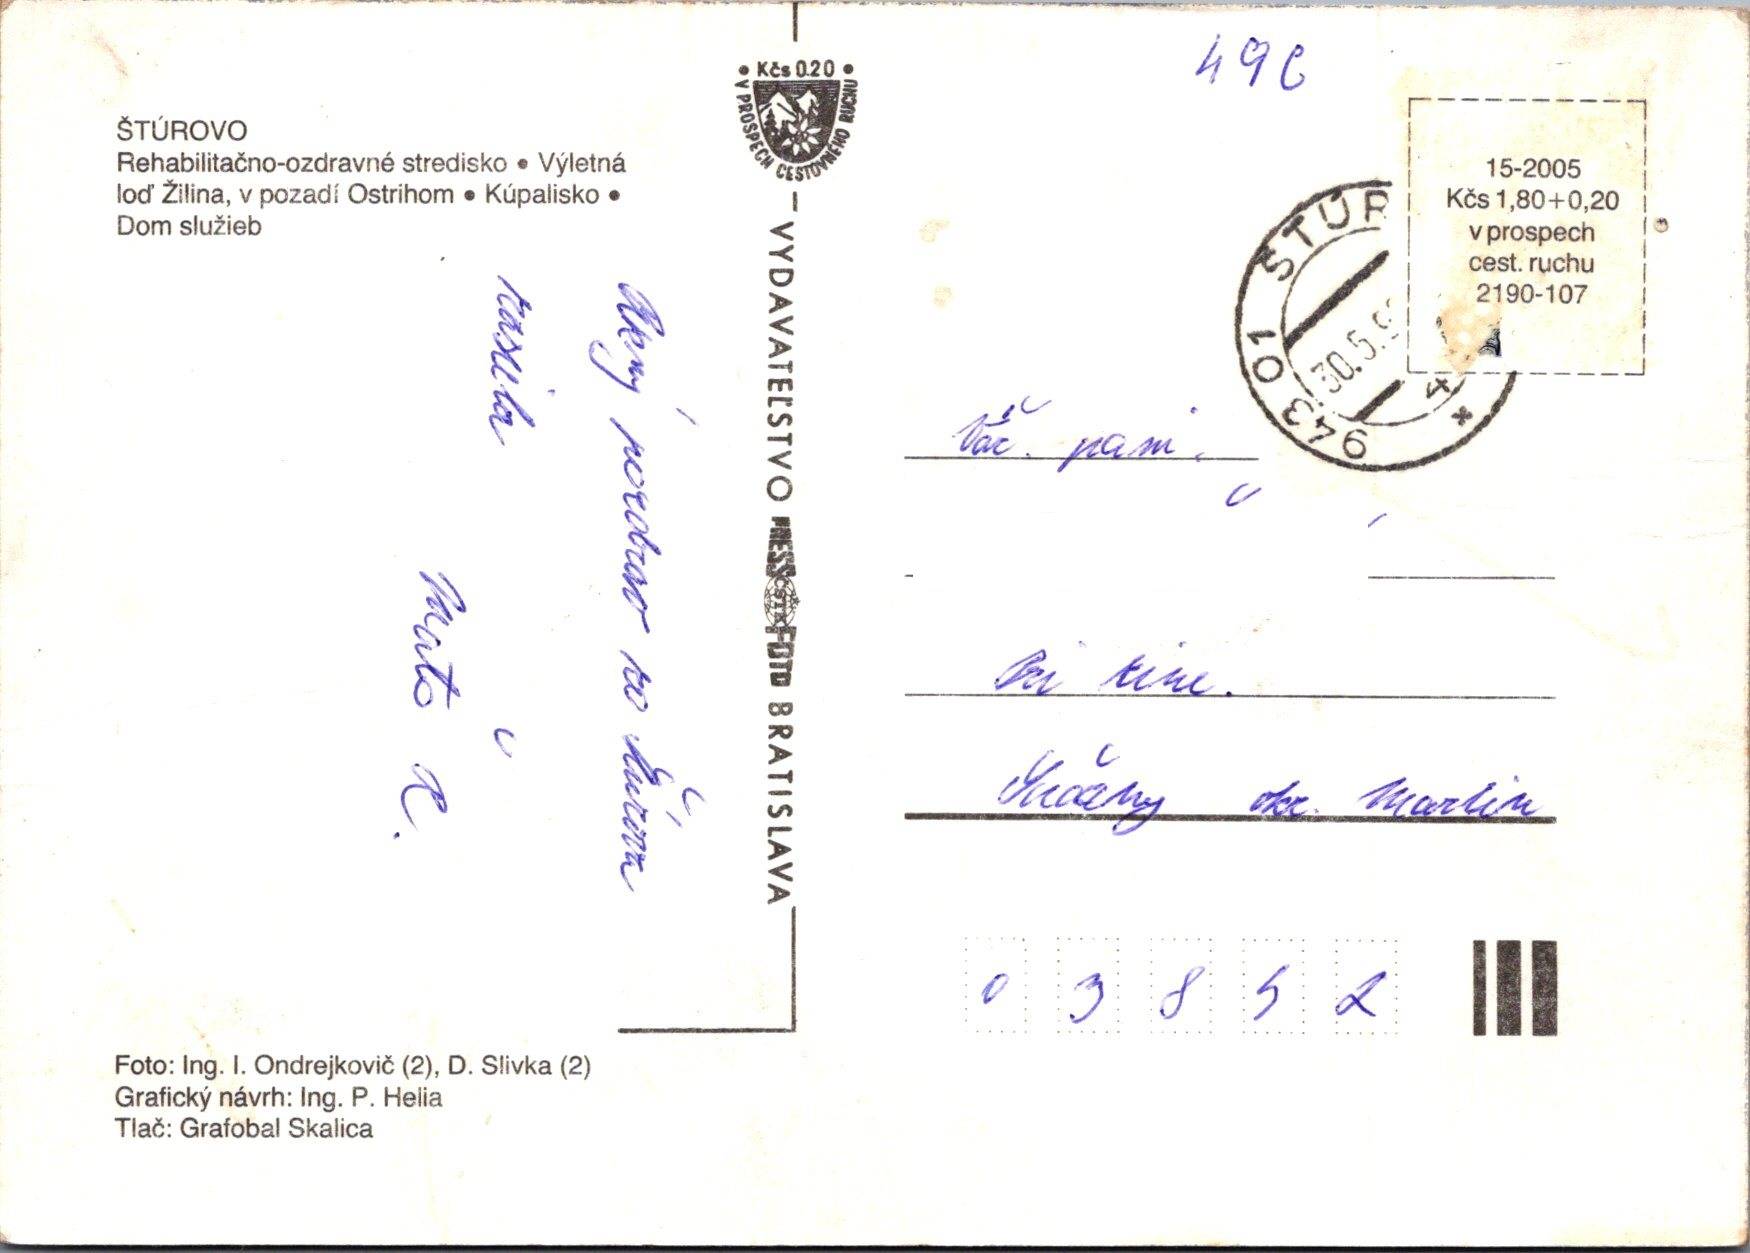 496
• Kčs 0.20 •
V PROSPECH CESTOVNÉHO RUCHU
ŠTÚROVO
Rehabilitačno-ozdravné stredisko • Výletná
loď Žilina, v pozadí Ostrihom • Kúpalisko •
Dom služieb
15-2005
Kčs 1,80+0,20
v prospech
cest. ruchu
2190-107
943 01 ŠTÚR
30.5.9
4 *
Pekný pozdrav zo Štúrova
zasiela
Maťo
VYDAVATEĽSTVO PRESSFOTO BRATISLAVA
ČSTK
Váž. pani.
Pri kine.
Sklabiny okr. Martin
0 3 8 5 2
Foto: Ing. I. Ondrejkovič (2), D. Slivka (2)
Grafický návrh: Ing. P. Helia
Tlač: Grafobal Skalica